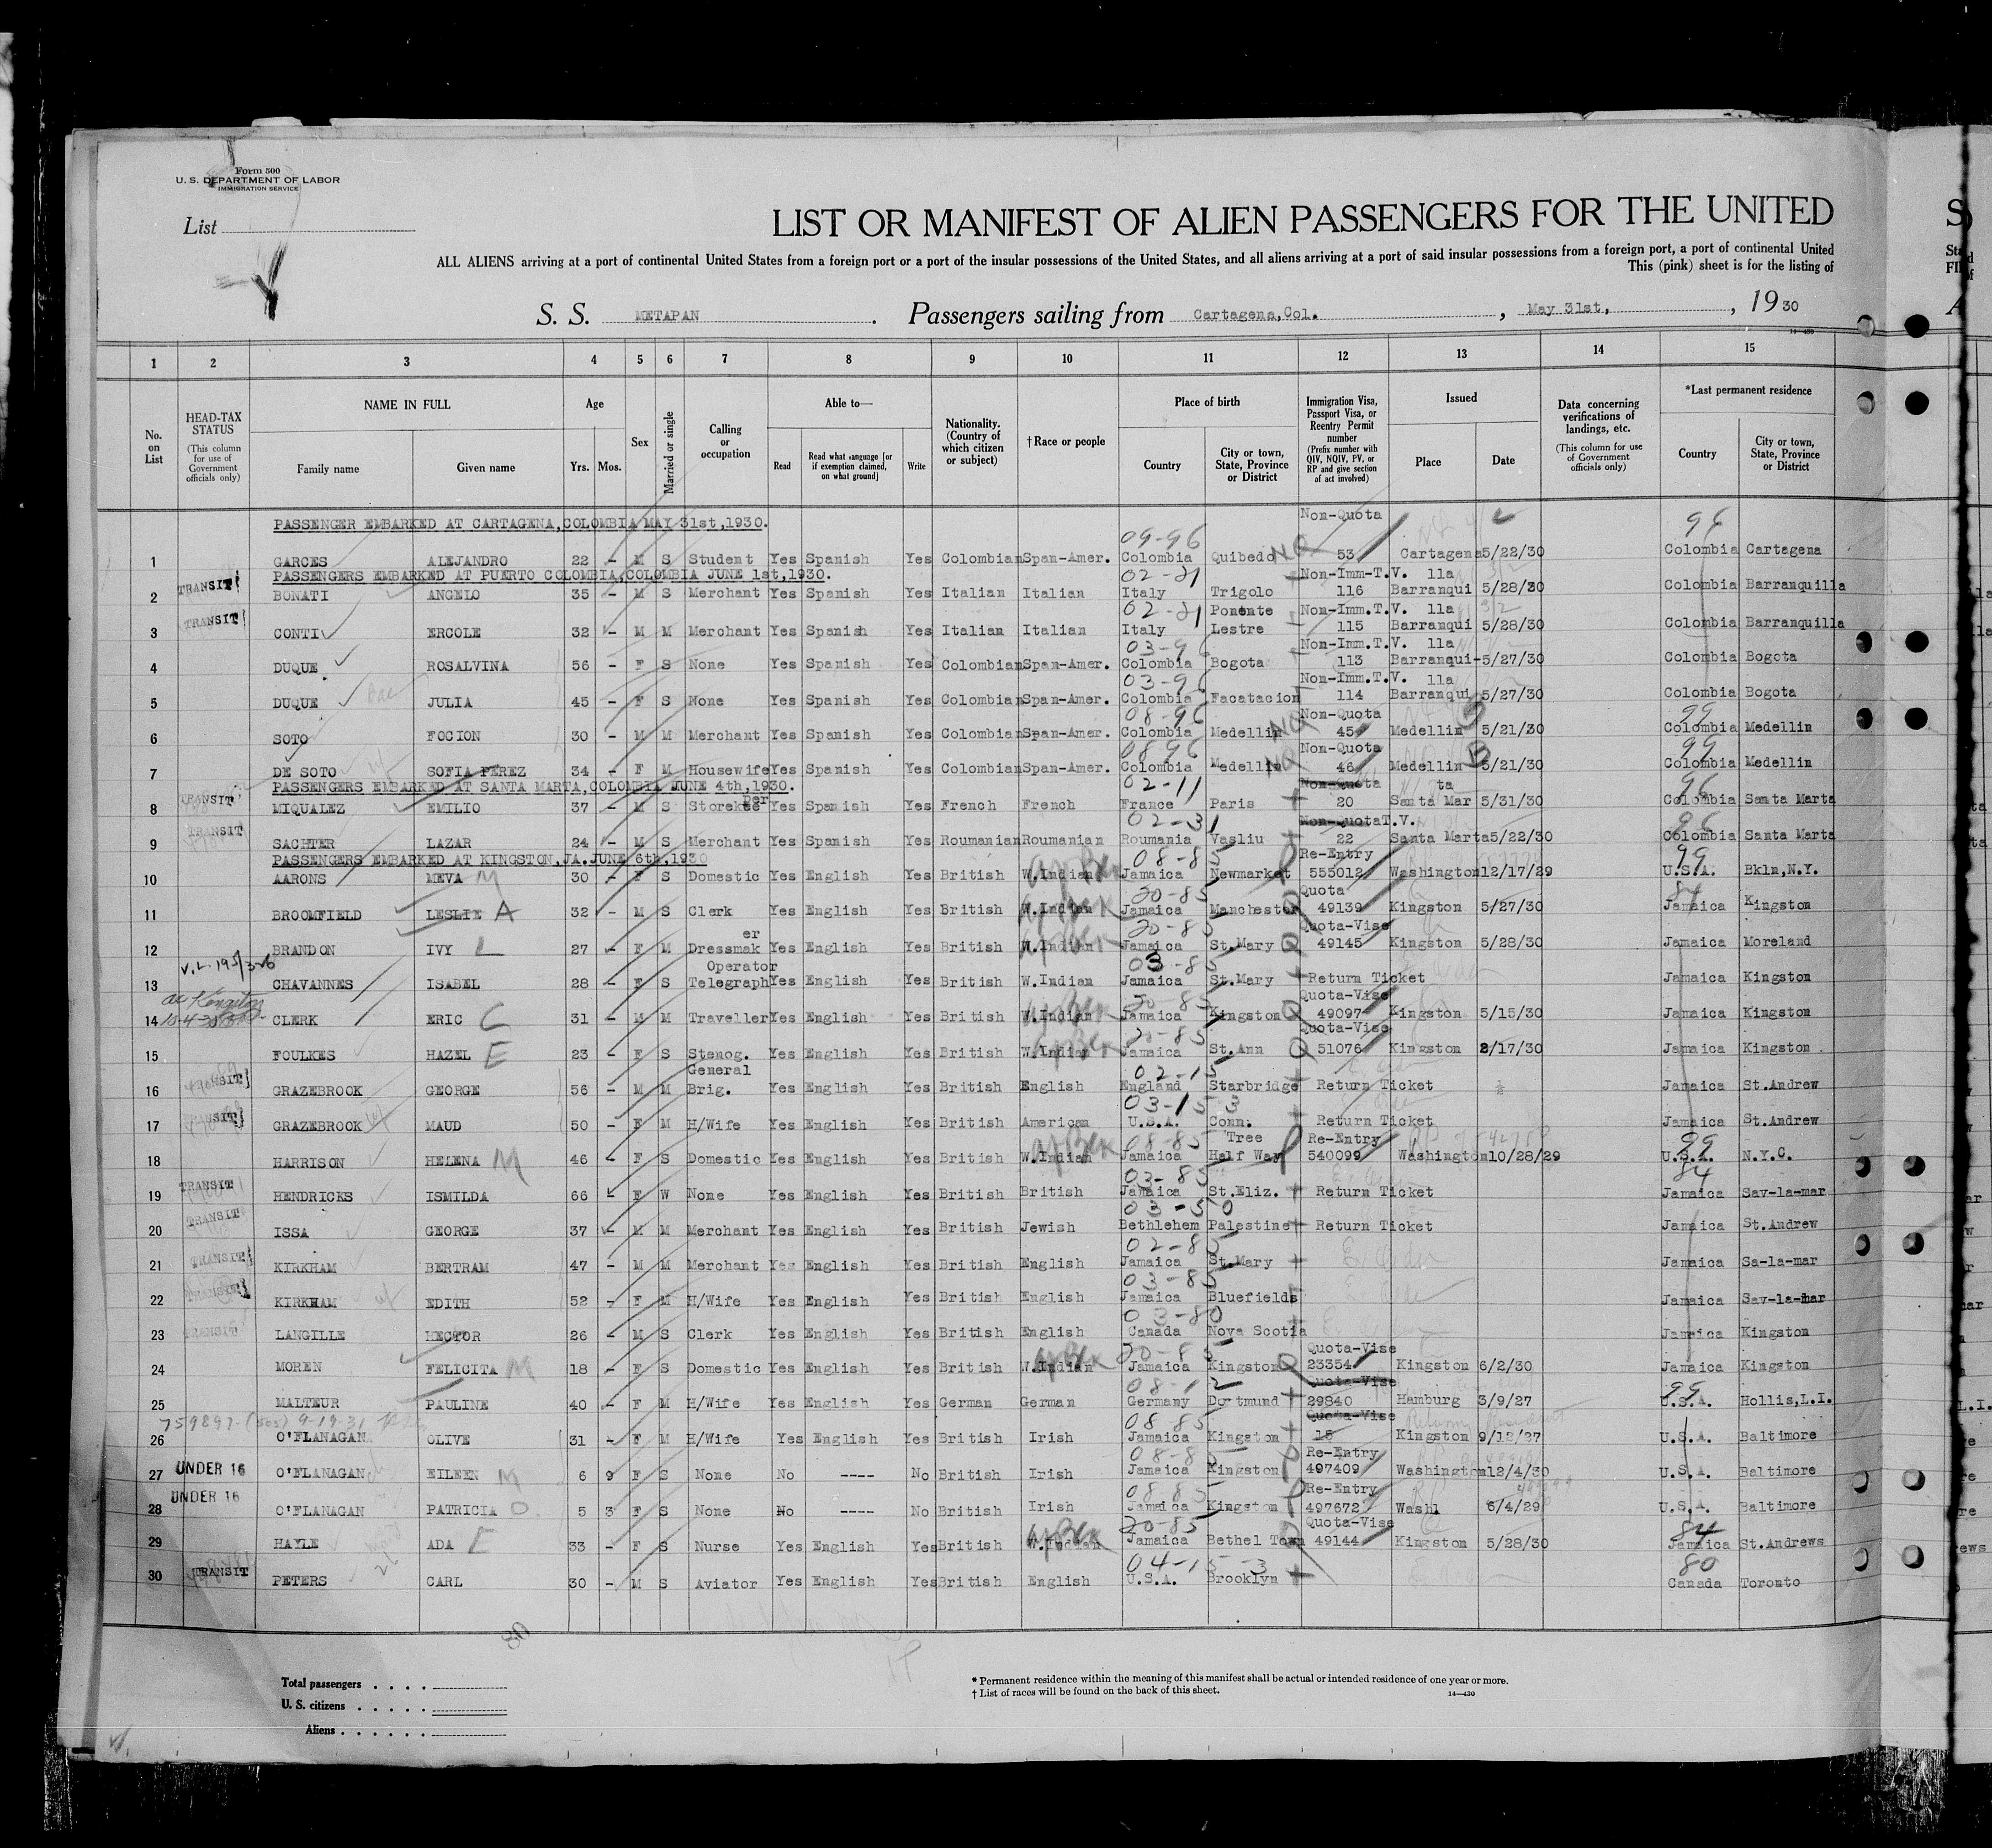 Form 500
U. S. DEPARTMENT OF LABOR
IMMIGRATION SERVICE
List
LIST OR MANIFEST OF ALIEN PASSENGERS FOR THE UNITED
ALL ALIENS arriving at a port of continental United States from a foreign port or a port of the insular possessions of the United States, and all aliens arriving at a port of said insular possessions from a foreign port, a port of continental United
This (pink) sheet is for the listing of
S. S. METAPAN. Passengers sailing from Cartagena,Col., May 31st,, 1930
14—430
1 2 3 4 5 6 7 8 9 10 11 12 13 14 15
No. on List
HEAD-TAX STATUS (This column for use of Government officials only)
NAME IN FULL Family name Given name
Age Yrs. Mos.
Sex
Married or single
Calling or occupation
Able to— Read Read what language [or if exemption claimed, on what ground] Write
Nationality. (Country of which citizen or subject)
†Race or people
Place of birth Country City or town, State, Province or District
Immigration Visa, Passport Visa, or Reentry Permit number (Prefix number with QIV, NQIV, PV, or RP and give section of act involved)
Issued Place Date
Data concerning verifications of landings, etc. (This column for use of Government officials only)
*Last permanent residence Country City or town, State, Province or District
PASSENGER EMBARKED AT CARTAGENA,COLOMBIA MAY 31st,1930. Non-Quota
09-96 96
1 GARCES ALEJANDRO 22 - M S Student Yes Spanish Yes Colombian Span-Amer. Colombia Quibedo NQ 53 Cartagena 5/22/30 Colombia Cartagena
PASSENGERS EMBARKED AT PUERTO COLOMBIA,COLOMBIA JUNE 1st,1930. 02-21 Non-Imm-T.V. lla
2 TRANSIT BONATI ANGELO 35 - M S Merchant Yes Spanish Yes Italian Italian Italy Trigolo 116 Barranqui 5/28/30 Colombia Barranquilla
02-21 Ponente Non-Imm.T.V. lla
3 TRANSIT CONTI ERCOLE 32 - M M Merchant Yes Spanish Yes Italian Italian Italy Lestre 115 Barranqui 5/28/30 Colombia Barranquilla
03-96 Non-Imm.T.V. lla
4 DUQUE ROSALVINA 56 - F S None Yes Spanish Yes Colombian Span-Amer. Colombia Bogota 113 Barranqui- 5/27/30 Colombia Bogota
03-96 Non-Imm.T.V. lla
5 DUQUE JULIA 45 - F S None Yes Spanish Yes Colombian Span-Amer. Colombia Facatacion 114 Barranqui 5/27/30 Colombia Bogota
08-96 Non-Quota 99
6 SOTO FOCION 30 - M M Merchant Yes Spanish Yes Colombian Span-Amer. Colombia Medellin NQ 45 Medellin 5/21/30 Colombia Medellin
0896 Non-Quota 99
7 DE SOTO SOFIA PEREZ 34 - F M Housewife Yes Spanish Yes Colombian Span-Amer. Colombia Medellin NQ 46 Medellin 5/21/30 Colombia Medellin
PASSENGERS EMBARKED AT SANTA MARTA,COLOMBIA JUNE 4th,1930. 02-11 Non-Quota ta 96
8 TRANSIT MIQUALEZ EMILIO 37 - M S Storekeeper Yes Spanish Yes French French France Paris 20 Santa Mar 5/31/30 Colombia Santa Marta
02-31 Non-Quota T.V. 96
9 TRANSIT SACHTER LAZAR 24 - M S Merchant Yes Spanish Yes Roumanian Roumanian Roumania Vasliu 22 Santa Marta 5/22/30 Colombia Santa Marta
PASSENGERS EMBARKED AT KINGSTON,JA.JUNE 6th,1930 08-85 Re-Entry 99
10 AARONS MEVA M 30 - F S Domestic Yes English Yes British W.Indian Jamaica Newmarket 555012 Washington 12/17/29 U.S.A. Bkln,N.Y.
20-85 Quota 84
11 BROOMFIELD LESLIE A 32 - M S Clerk Yes English Yes British W.Indian Jamaica Manchester Q 49139 Kingston 5/27/30 Jamaica Kingston
er 20-85 Quota-Vise
12 BRANDON IVY L 27 - F M Dressmak Yes English Yes British W.Indian Jamaica St.Mary Q 49145 Kingston 5/28/30 Jamaica Moreland
Operator 03-85
13 CHAVANNES ISABEL 28 - F S Telegraph Yes English Yes British W.Indian Jamaica St.Mary Return Ticket Jamaica Kingston
20-85 Quota-Vise
14 CLERK ERIC C 31 - M M Traveller Yes English Yes British W.Indian Jamaica Kingston Q 49097 Kingston 5/15/30 Jamaica Kingston
20-85 Quota-Vise
15 FOULKES HAZEL E 23 - F S Stenog. Yes English Yes British W.Indian Jamaica St.Ann Q 51076 Kingston 2/17/30 Jamaica Kingston
General 02-15
16 TRANSIT GRAZEBROOK GEORGE 56 - M M Brig. Yes English Yes British English England Starbridge Return Ticket Jamaica St.Andrew
03-15 3
17 TRANSIT GRAZEBROOK MAUD 50 - F M H/Wife Yes English Yes British American U.S.A. Conn. Return Ticket Jamaica St.Andrew
08-85 Tree Re-Entry 99
18 HARRISON HELENA M 46 - F S Domestic Yes English Yes British W.Indian Jamaica Half Way 540099 Washington 10/28/29 U.S.A. N.Y.C.
03-85 84
19 TRANSIT HENDRICKS ISMILDA 66 - F W None Yes English Yes British British Jamaica St.Eliz. Return Ticket Jamaica Sav-la-mar
03-50
20 TRANSIT ISSA GEORGE 37 - M M Merchant Yes English Yes British Jewish Bethlehem Palestine Return Ticket Jamaica St.Andrew
02-85
21 TRANSIT KIRKHAM BERTRAM 47 - M M Merchant Yes English Yes British English Jamaica St.Mary Jamaica Sa-la-mar
03-85
22 TRANSIT KIRKHAM EDITH 52 - F M H/Wife Yes English Yes British English Jamaica Bluefields Jamaica Sav-la-mar
03-80
23 TRANSIT LANGILLE HECTOR 26 - M S Clerk Yes English Yes British English Canada Nova Scotia Jamaica Kingston
20-85 Quota-Vise
24 MOREN FELICITA M 18 - F S Domestic Yes English Yes British W.Indian Jamaica Kingston Q 23354 Kingston 6/2/30 Jamaica Kingston
08-12 Quota-Vise 99
25 MALTEUR PAULINE 40 - F M H/Wife Yes English Yes German German Germany Dortmund 29840 Hamburg 3/9/27 U.S.A. Hollis,L.I.
08-85 Quota-Vise
26 O'FLANAGAN OLIVE 31 - F M H/Wife Yes English Yes British Irish Jamaica Kingston 15 Kingston 9/12/27 U.S.A. Baltimore
08-85 Re-Entry
27 UNDER 16 O'FLANAGAN EILEEN M 6 9 F S None No ---- No British Irish Jamaica Kingston 497409 Washington 12/4/30 U.S.A. Baltimore
08-85 Re-Entry
28 UNDER 16 O'FLANAGAN PATRICIA O 5 3 F S None No ---- No British Irish Jamaica Kingston 497672 Washl 6/4/29 U.S.A. Baltimore
20-85 Quota-Vise 84
29 HAYLE ADA E 33 - F S Nurse Yes English Yes British W.Indian Jamaica Bethel Town 49144 Kingston 5/28/30 Jamaica St.Andrews
04-15-3 80
30 TRANSIT PETERS CARL 30 - M S Aviator Yes English Yes British English U.S.A. Brooklyn Canada Toronto
Total passengers . . . .
U. S. citizens . . . . .
Aliens . . . . . .
* Permanent residence within the meaning of this manifest shall be actual or intended residence of one year or more.
† List of races will be found on the back of this sheet.
14—430